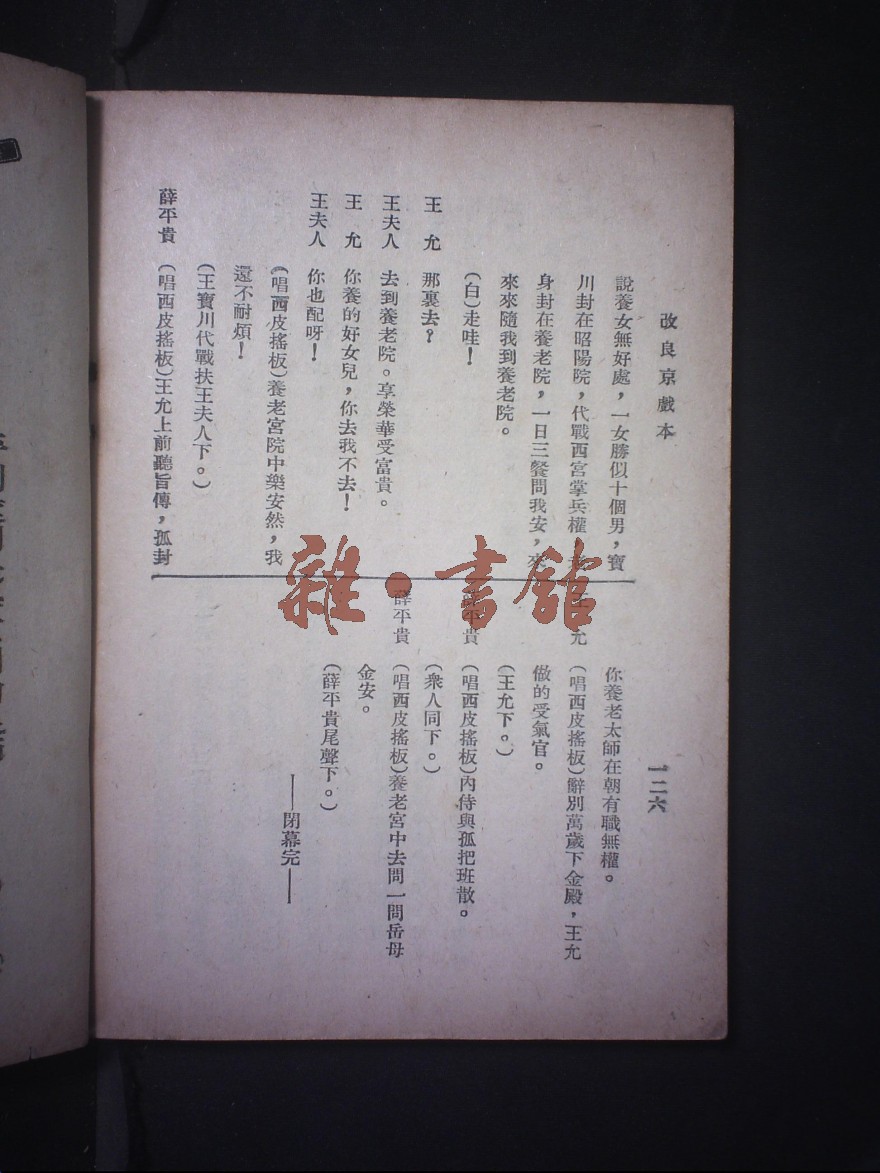 改良京戲本
一二六
說養女無好處，一女勝似十個男，寶
川封在昭陽院，代戰西宮掌兵權，
身封在養老院，一日三餐問我安，來
來來隨我到養老院。
(白)走哇！
王允 那裏去？
王夫人 去到養老院。享榮華受富貴。
王允 你養的好女兒，你去我不去！
王夫人 你也配呀！
(唱西皮搖板)養老宮院中樂安然，我
還不耐煩！
(王寶川代戰扶王夫人下。)
薛平貴 (唱西皮搖板)王允上前聽旨傳，孤封
你養老太師在朝有職無權。
王允 (唱西皮搖板)辭別萬歲下金殿，王允
做的受氣官。
(王允下。)
薛平貴 (唱西皮搖板)內侍與孤把班散。
(衆人同下。)
薛平貴 (唱西皮搖板)養老宮中去問一問岳母
金安。
(薛平貴尾聲下。)
——閉幕完——
雜·書館